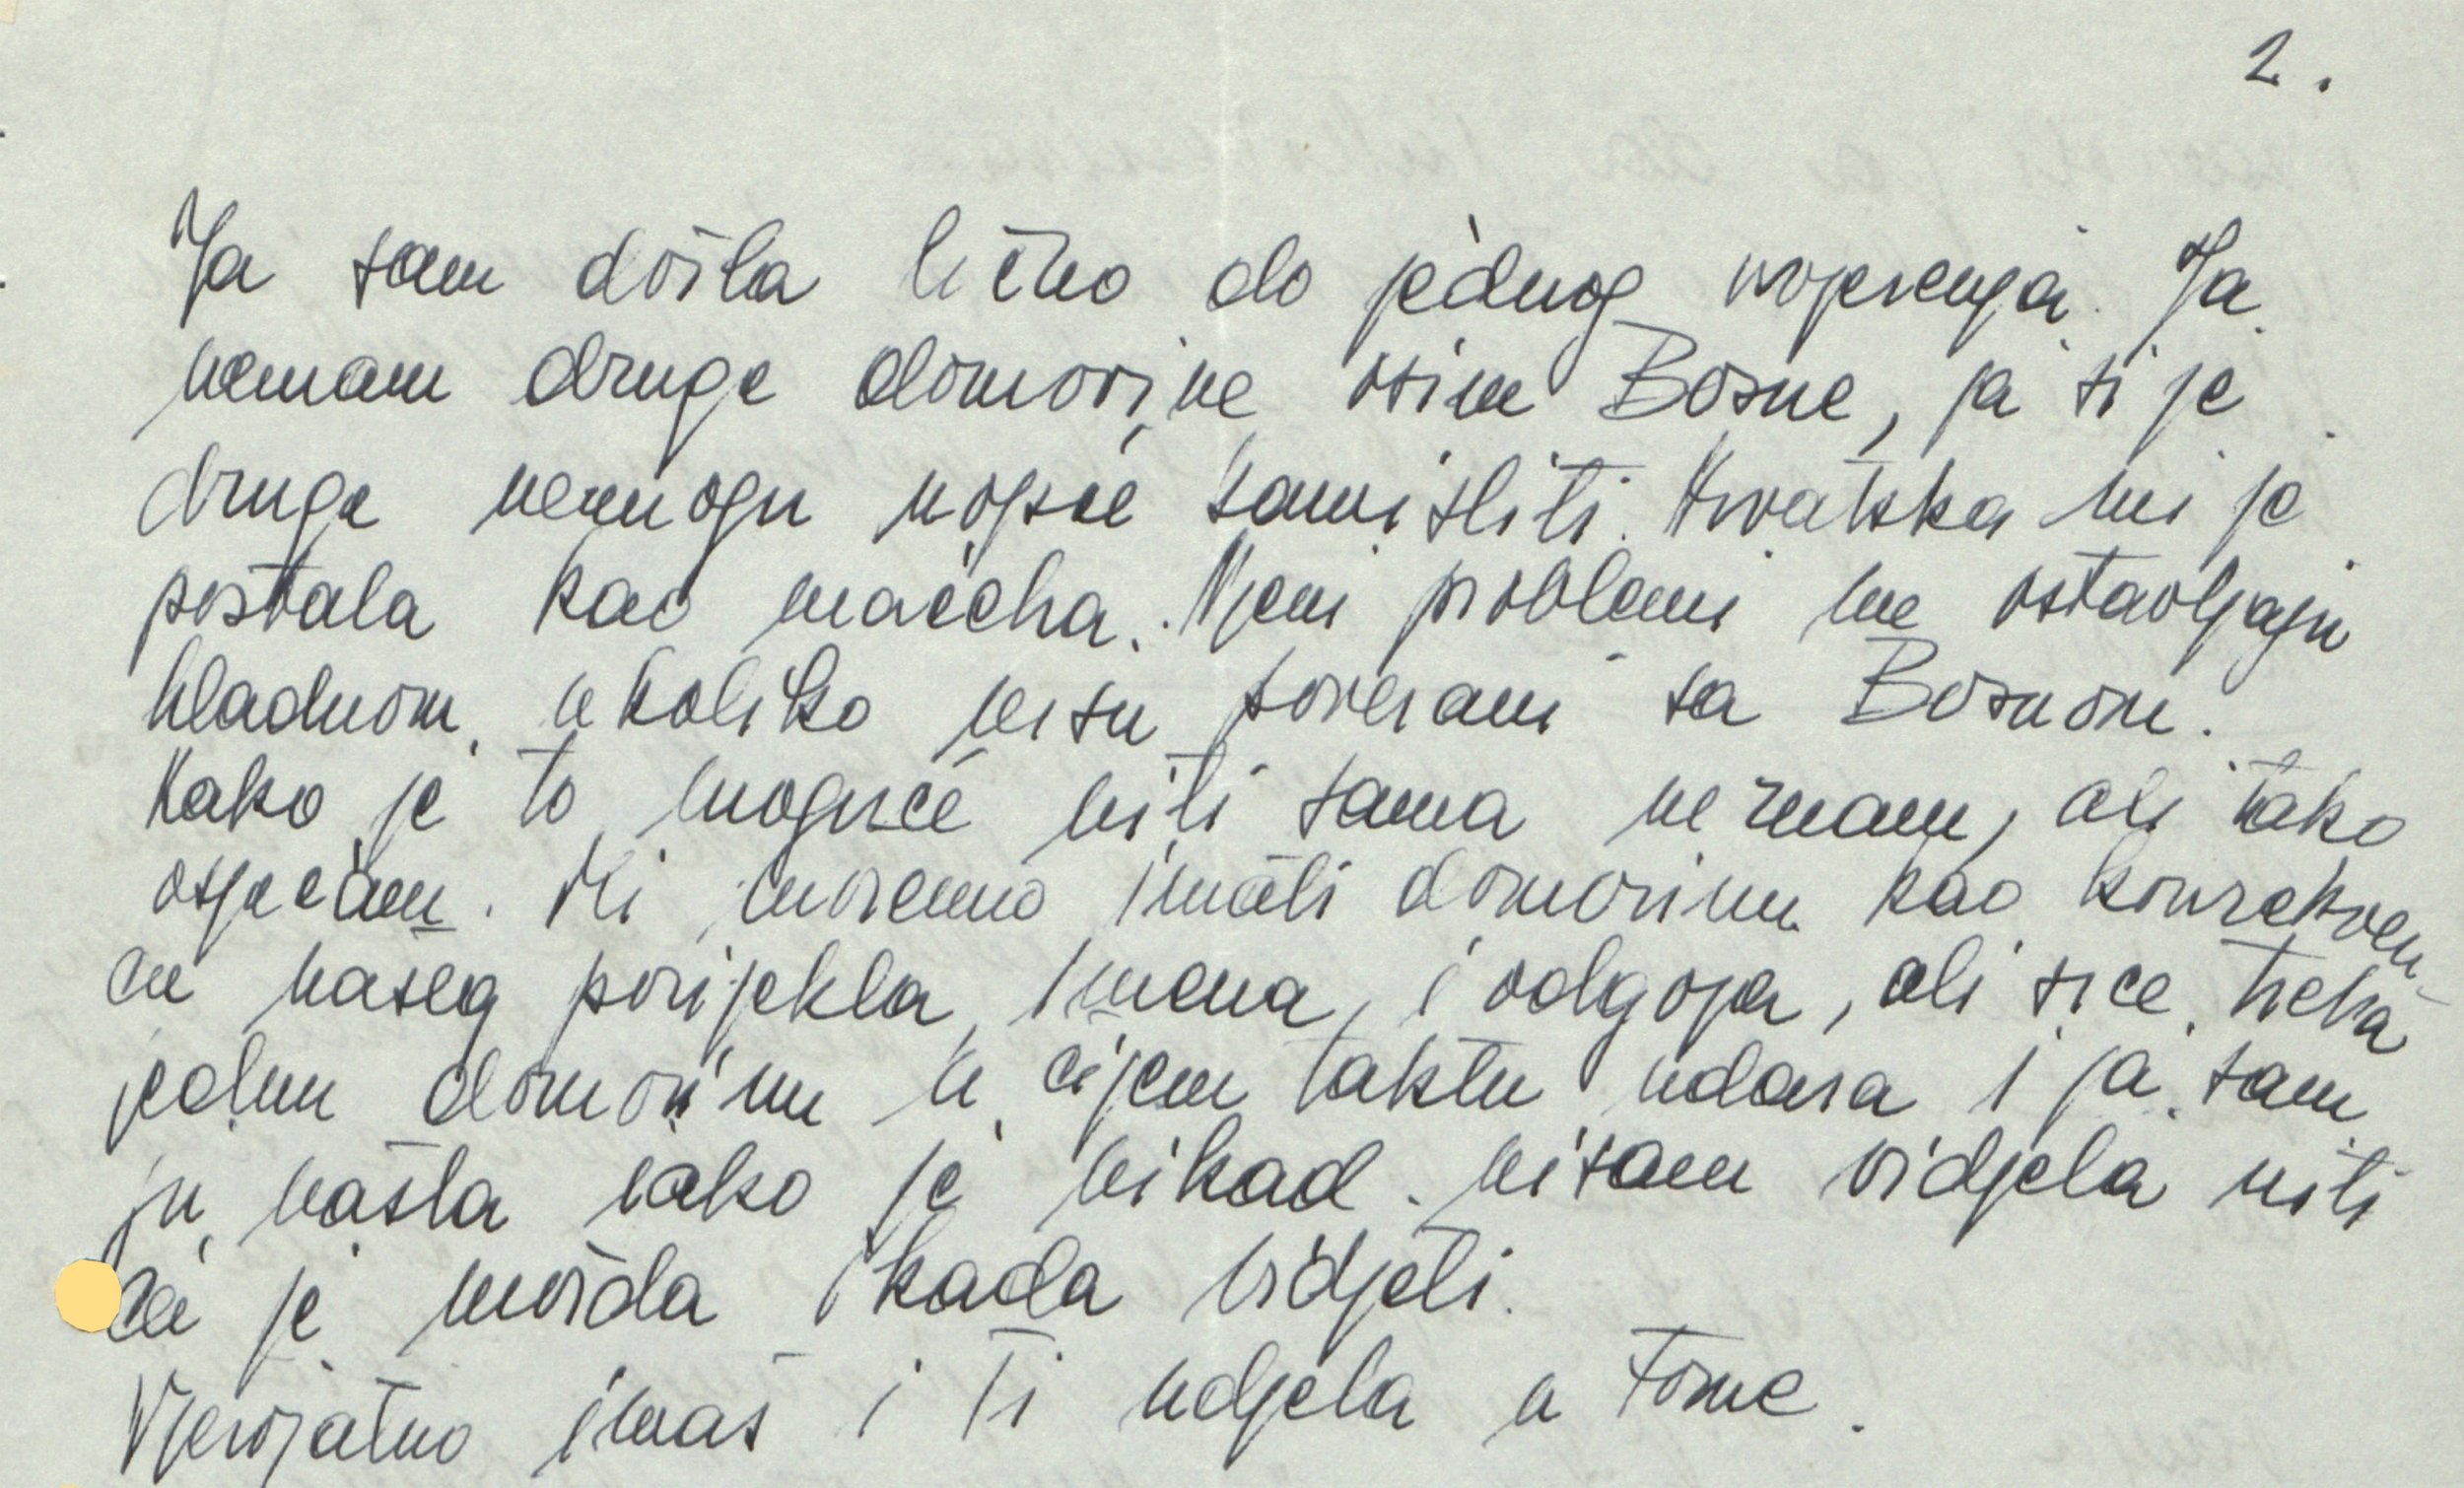 2.
Ja sam došla lično do jednog uvjerenja. Ja
nemam druge domovine osim Bosne, ja si je
druge nemogu uopće zamisliti. Hrvatska mi je
postala kao maćeha. Njeni problemi me ostavljaju
hladnom, ukoliko nisu povezani sa Bosnom.
Kako je to moguće niti sama ne znam, ali tako
osjećam. Mi moremo imati domovinu kao konzekven-
cu našeg porijekla, imena, i odgoja, ali srce treba
jednu domovinu u čijem taktu udara i ja sam
ju našla iako je nikad nisam vidjela niti
ću je možda ikada vidjeti.
Vjerojatno imaš i Ti udjela u tome.